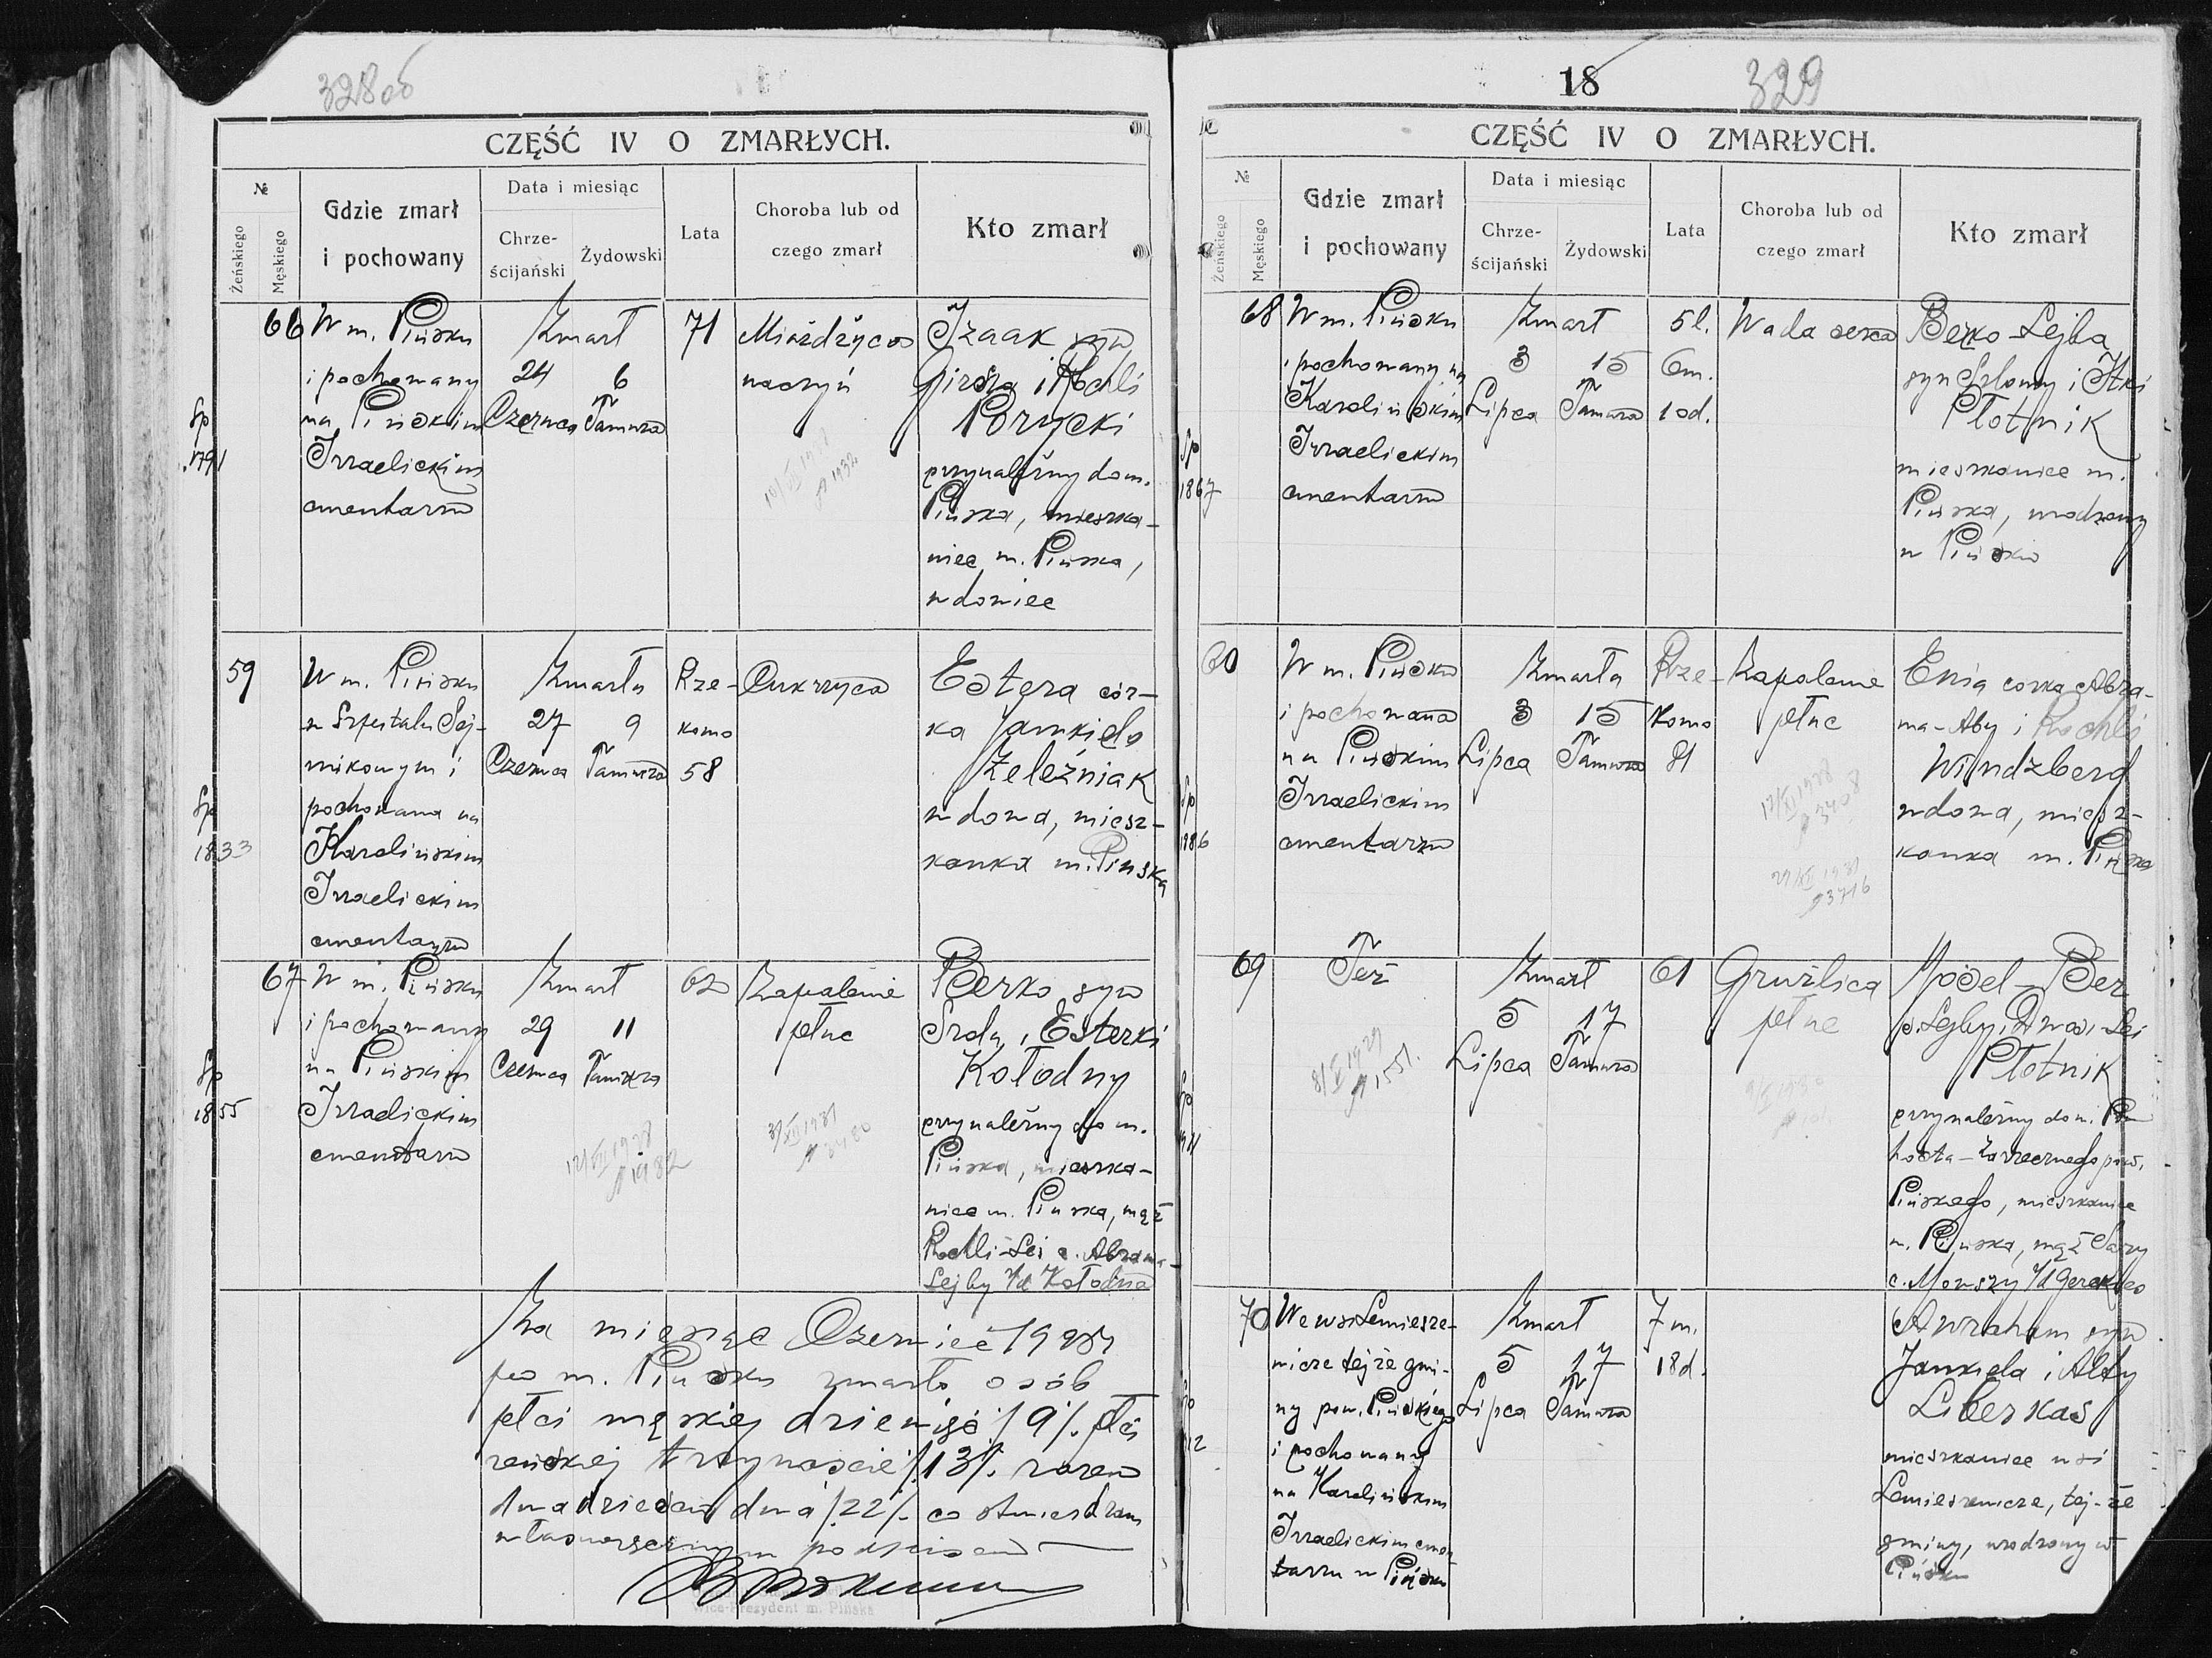 328 об
CZĘŚĆ IV O ZMARŁYCH.
№
Żeńskiego
Męskiego
Gdzie zmarł
i pochowany
Data i miesiąc
Chrze-
ścijański
Żydowski
Lata
Choroba lub od
czego zmarł
Kto zmarł
66
W m. Pińsku
i pochowany
na Pińskim
Izraelickim
cmentarzu
Zmarł
24 6
Czerwca Tamuza
71
Miażdżyca
naczyń
Izaak syn
Girsza i Rochli
Porycki
przynależny do m.
Pińska, mieszka-
niec m. Pińska,
wdowiec
Sp
1791
59
W m. Pińsku
w Szpitalu Sej-
mikowym i
pochowana na
Karolińskim
Izraelickim
cmentarzu
Zmarła
27 9
Czerwca Tamuza
Rze-
komo
58
Cukrzyca
Estera cór-
ka Jankiela
Żeleźniak
wdowa, miesz-
kanka m. Pińska
Sp
1833
67
W m. Pińsku
i pochowany
na Pińskim
Izraelickim
cmentarzu
Zmarł
29 11
Czerwca Tamuza
62
Zapalenie
płuc
Berko syn
Srola i Esterki
Kołodny
przynależny do m.
Pińska, mieszka-
niec m. Pińska, mąż
Rochli-Lei c. Abrama-
Lejby z/d Kołodna
Sp
1855
Za miesiąc Czerwiec
po m. Pińsku zmarło osób
płci męskiej dziewięć /9/. płci
żeńskiej trzynaście /13/. razem
dwadzieścia dwa /22/. co stwierdzam
własnoręcznym podpisem
Wice-Prezydent m. Pińska
18
329
CZĘŚĆ IV O ZMARŁYCH.
№
Żeńskiego
Męskiego
Gdzie zmarł
i pochowany
Data i miesiąc
Chrze-
ścijański
Żydowski
Lata
Choroba lub od
czego zmarł
Kto zmarł
68
W m. Pińsku
i pochowany na
Karolińskim
Izraelickim
cmentarzu
Zmarł
3 15
Lipca Tamuza
5 l.
6 m.
10 d.
Wada serca
Berko-Lejba
syn Szlomy i Itki
Płotnik
mieszkaniec m.
Pińska, urodzony
w Pińsku
Sp
1867
60
W m. Pińsku
i pochowana
na Pińskim
Izraelickim
cmentarzu
Zmarła
3 15
Lipca Tamuza
Rze-
komo
81
Zapalenie
płuc
Enia córka Abra-
ma-Aby i Rochli
Windzberg
wdowa, miesz-
kanka m. Pińska
Sp
1886
69
Też
Zmarł
5 17
Lipca Tamuza
61
Gruźlica
płuc
Mosel-Ber
s. Lejby i Dwos-Lei
Płotnik
przynależny do m. Po-
hosta-Zarzecznego pow.
Pińskiego, mieszkaniec
m. Pińska, mąż Sary
c. Mowszy z/d
Sp
70
We wsi Lemiesze-
wicze tejże gmi-
ny pow. Pińskiego
i pochowany
na Karolińskim
Izraelickim cmen-
tarzu w Pińsku
Zmarł
5 17
Lipca Tamuza
7 m.
18 d.
Awraham syn
Jankiela i Alty
Liberkas
mieszkaniec wsi
Lemieszewicze, tej-że
gminy, urodzony w
Pińsku